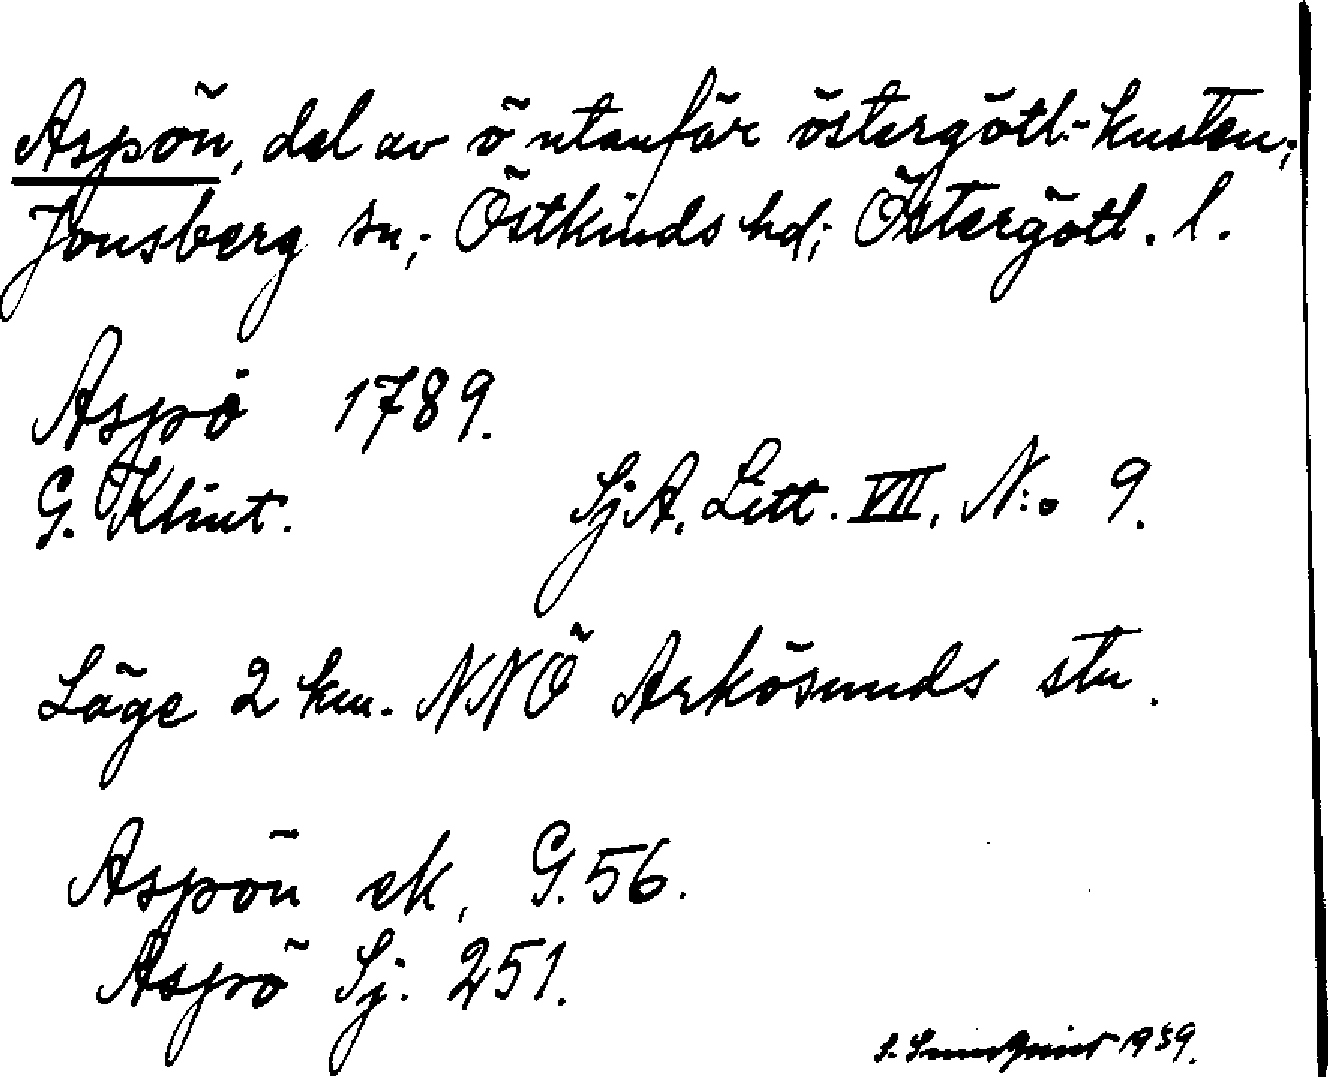 Aspön, del av ö utanför östergötl.-kusten;
Jonsberg sn; Östkinds hd; Östergötl. l.
Aspö 1789.
G. Klint. SjA. Litt. VII. N:o 9.
Läge 2 km. NNÖ Arkösunds stn.
Aspön ek, G. 56.
Aspö Sj. 251.
1939.